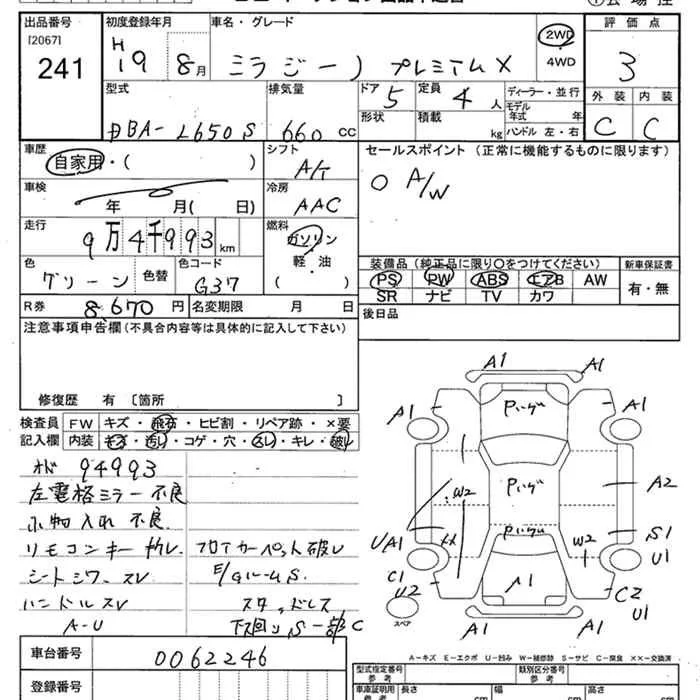 出品番号 初度登録年月 車名・グレード 評価点
[2067] H 2WD
241 19 8月 ミラジーノ プレミアムX ・4WD 3
型式 排気量 ドア 5 定員 4人 ディーラー・並行 外装 内装
DBA-L650S 660cc 形状 積載 kg モデル年式 年 C C
ハンドル 左・右
車歴 シフト セールスポイント(正常に機能するものに限ります)
自家用・( ) A/T O A/W
車検 冷房
年 月( 日) AAC
走行 燃料
9万4千993km ガソリン
軽・油
( )
色 色替 色コード 装備品(純正品に限り○をつけてください) 新車保証書
グリーン G37 PS PW ABS エアB AW 有・無
SR ナビ TV カワ
R券 8,670円 名変期限 月 日 後日品
注意事項申告欄(不具合内容等は具体的に記入して下さい)
修復歴 有〔箇所 〕
検査員 FW キズ・飛石・ヒビ割・リペア跡・×要
記入欄 内装 キズ・汚レ・コゲ・穴・スレ・キレ・破レ
オド 94993
左電格ミラー不良
小物入れ不良
リモコンキー フロアカーペット破レ
シートシワ、スレ E/GルームS
ハンドルスレ スタッドレス
A-U 下回りS 一部C
A1 A1
A1 Pいげ A1
W2 Pいげ A2
Pいげ S1
UA1 XX W2 U1
C1 C2
U2 A1 U1
スペア A1 A1
A-キズ E-エクボ U-凹み W-補修跡 S-サビ C-腐食 XX-交換済
車台番号 0062246 型式指定番号 参考 類別区分番号 参考
登録番号 車庫証明用 参考 長さ cm 幅 cm 高さ cm